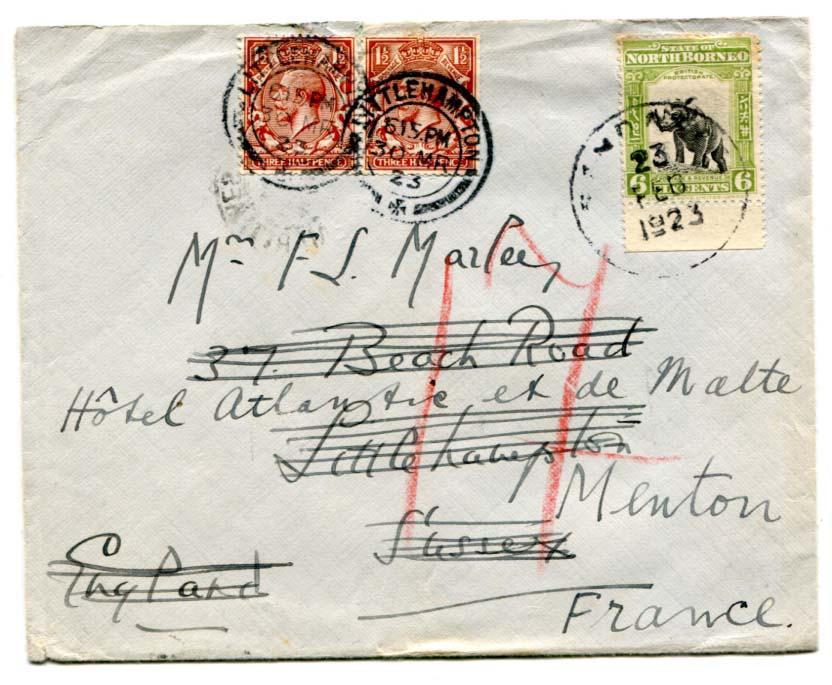 1½ 1½
THREE HALF PENCE THREE HALF PENCE
615 PM
30 MR
23
LITTLEHAMPTON
615 PM
30 MR
23
STATE OF
NORTH BORNEO
BRITISH
PROTECTORATE
POSTAGE & REVENUE
6 CENTS 6
23
FEB
1923
Mrs F S. Marley
37. Beach Road
Hôtel Atlantic et de Malte
Littlehampton
Menton
Sussex
England
France.